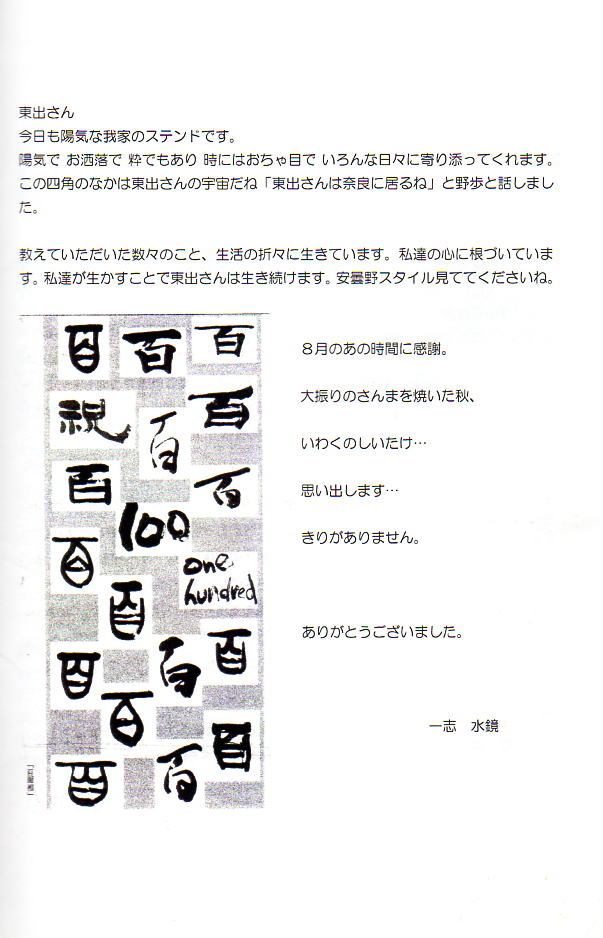 東出さん
今日も陽気な我家のステンドです。
陽気で お洒落で 粋でもあり 時にはおちゃ目で いろんな日々に寄り添ってくれます。
この四角のなかは東出さんの宇宙だね「東出さんは奈良に居るね」と野歩と話しまし
た。
教えていただいた数々のこと、生活の折々に生きています。私達の心に根づいていま
す。私達が生かすことで東出さんは生き続けます。安曇野スタイル見ててくださいね。
百
百
百
祝
百
百
百
百
100
百
one
hundred
百
百
百
百
百
百
百
百
８月のあの時間に感謝。
大振りのさんまを焼いた秋、
いわくのしいたけ…
思い出します…
きりがありません。
ありがとうございました。
一志　水鏡